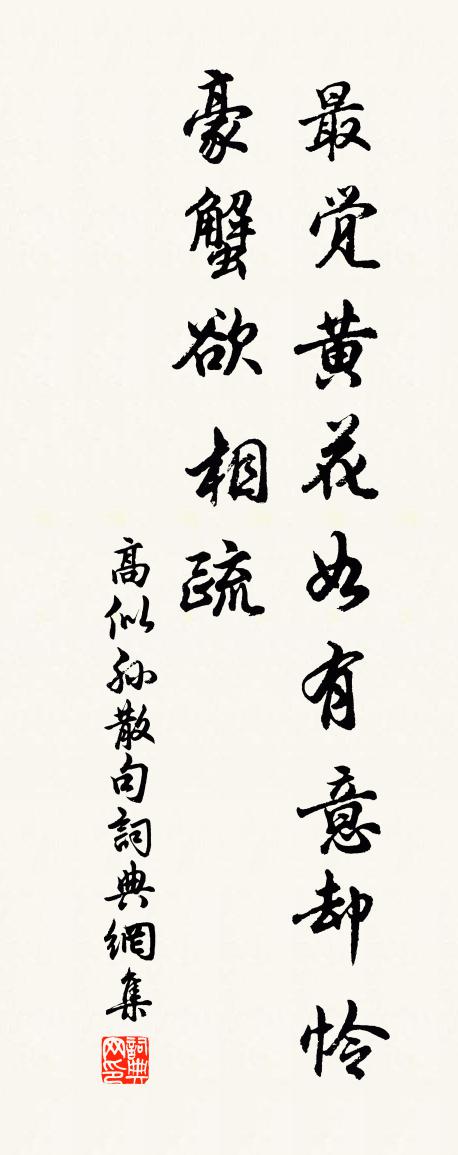 最觉黄花如有意却怜
豪蟹欲相疏
高似孙散句詞典網集
詞典网印